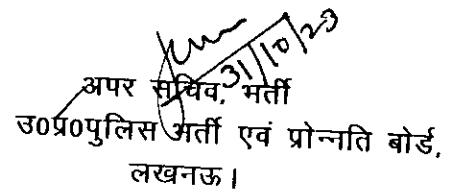 31/10/23
अपर सचिव, भर्ती
उ0प्र0पुलिस भर्ती एवं प्रोन्नति बोर्ड,
लखनऊ।